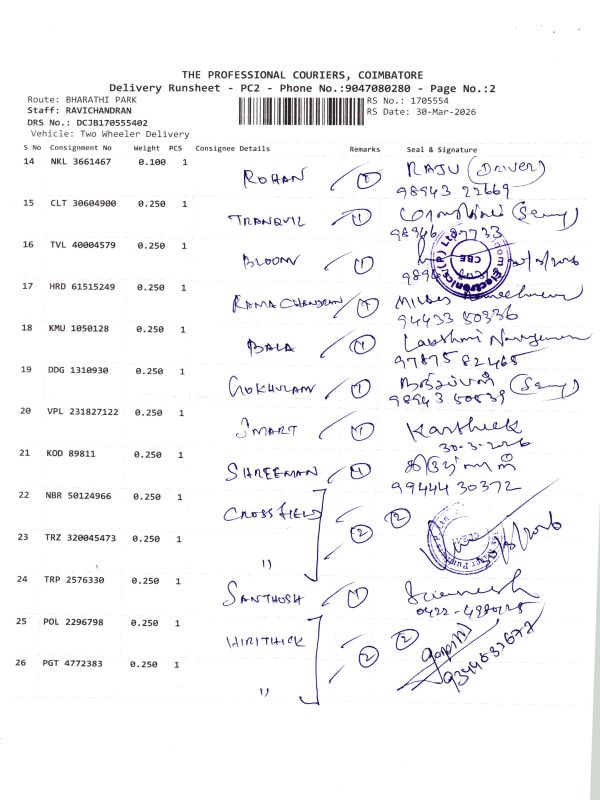 THE PROFESSIONAL COURIERS, COIMBATORE
Delivery Runsheet - PC2 - Phone No.:9047080280 - Page No.:2
Route: BHARATHI PARK
RS No.: 1705554
Staff: RAVICHANDRAN
RS Date: 30-Mar-2026
DRS No.: DCJB170555402
Vehicle: Two Wheeler Delivery
S No Consignment No Weight PCS Consignee Details Remarks Seal & Signature
14 NKL 3661467 0.100 1 ROHAN 1 RAJU (DRIVER)
98943 22669
15 CLT 30604900 0.250 1 TRANQUIL 1
16 TVL 40004579 0.250 1 BLOOM 1
CBE
17 HRD 61515249 0.250 1 RAMACHANDRAN 1
94433 50336
18 KMU 1050128 0.250 1 BALA 1 Lakshmi Narayanan
97875 82465
19 DDG 1310930 0.250 1 GOKHULAM 1
98943 50539
20 VPL 231827122 0.250 1 SMART 1 Kartheek
30-3-2026
21 KOD 89811 0.250 1 SHREEMAN 1
99444 30372
22 NBR 50124966 0.250 1 CROSSFIELD 2 2
23 TRZ 320045473 0.250 1 "
24 TRP 2576330 0.250 1 SANTHOSH 1
25 POL 2296798 0.250 1 HIRITHICK 2 2
26 PGT 4772383 0.250 1 "